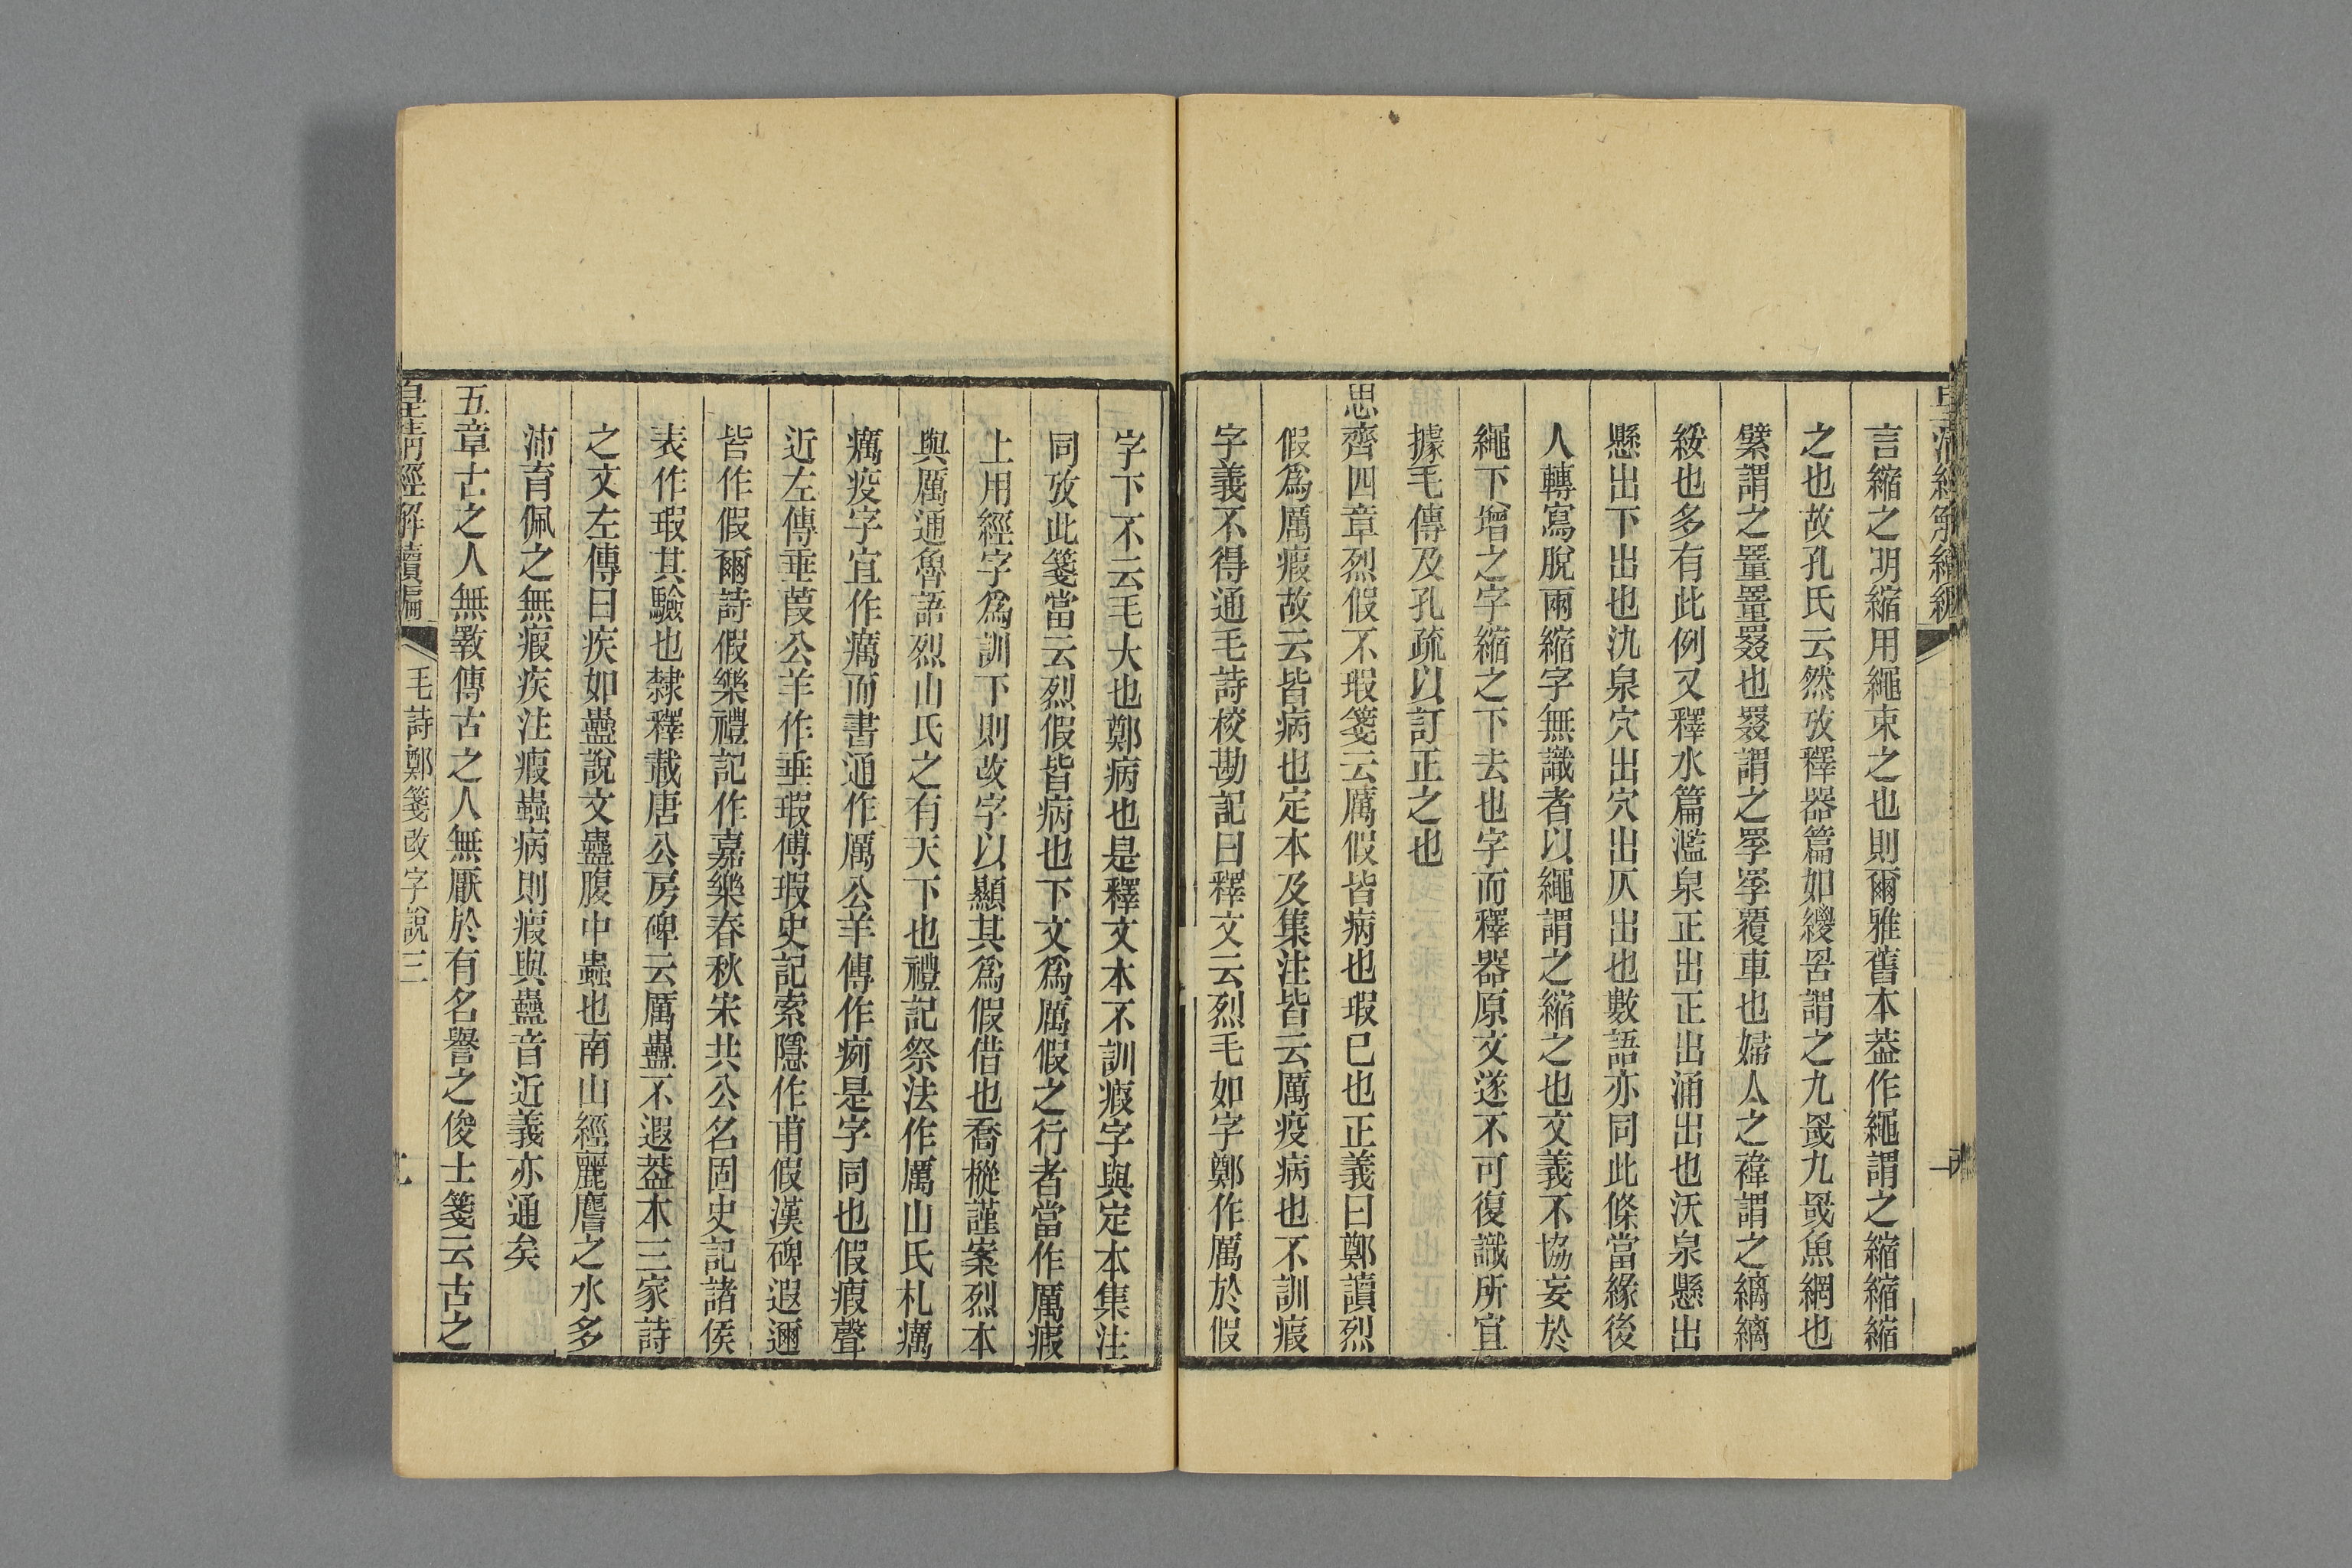 皇清經解續編
言縮之明縮用繩束之也則爾雅舊本葢作繩謂之縮縮縮
之也故孔氏云然攷釋器篇如緵罟謂之九罭九罭魚網也
繴謂之罿罿罬也罬謂之罦罦覆車也婦人之褘謂之縭縭
緌也多有此例又釋水篇濫泉正出正出涌出也沃泉懸出
懸出下出也氿泉穴出穴出仄出也數語亦同此條當緣後
人轉寫脫兩縮字無識者以繩謂之縮之也文義不協妄於
繩下增之字縮之下去也字而釋器原文遂不可復識所宜
據毛傳及孔疏以訂正之也
思齊四章烈假不瑕箋云厲假皆病也瑕已也正義曰鄭讀烈
假爲厲瘕故云皆病也定本及集注皆云厲疫病也不訓瘕
字義不得通毛詩校勘記曰釋文云烈毛如字鄭作厲於假
字下不云毛大也鄭病也是釋文本不訓瘕字與定本集注
同攷此箋當云烈假皆病也下文爲厲假之行者當作厲瘕
上用經字爲訓下則改字以顯其爲假借也喬樅謹案烈本
與厲通魯語烈山氏之有天下也禮記祭法作厲山氏札癘
癘疫字宜作癘而書通作厲公羊傳作痾是字同也假瘕聲
近左傳垂葭公羊作垂瑕傅瑕史記索隱作甫假漢碑遐邇
皆作假爾詩假樂禮記作嘉樂春秋宋共公名固史記諸侯
表作瑕其驗也隸釋載唐公房碑云厲蠱不遐葢本三家詩
之文左傳曰疾如蠱說文蠱腹中蟲也南山經麗麂之水多
沛育佩之無瘕疾注瘕蟲病則瘕與蠱音近義亦通矣
五章古之人無斁傳古之人無厭於有名譽之俊士箋云古之
皇清經解續編
毛詩鄭箋改字說三